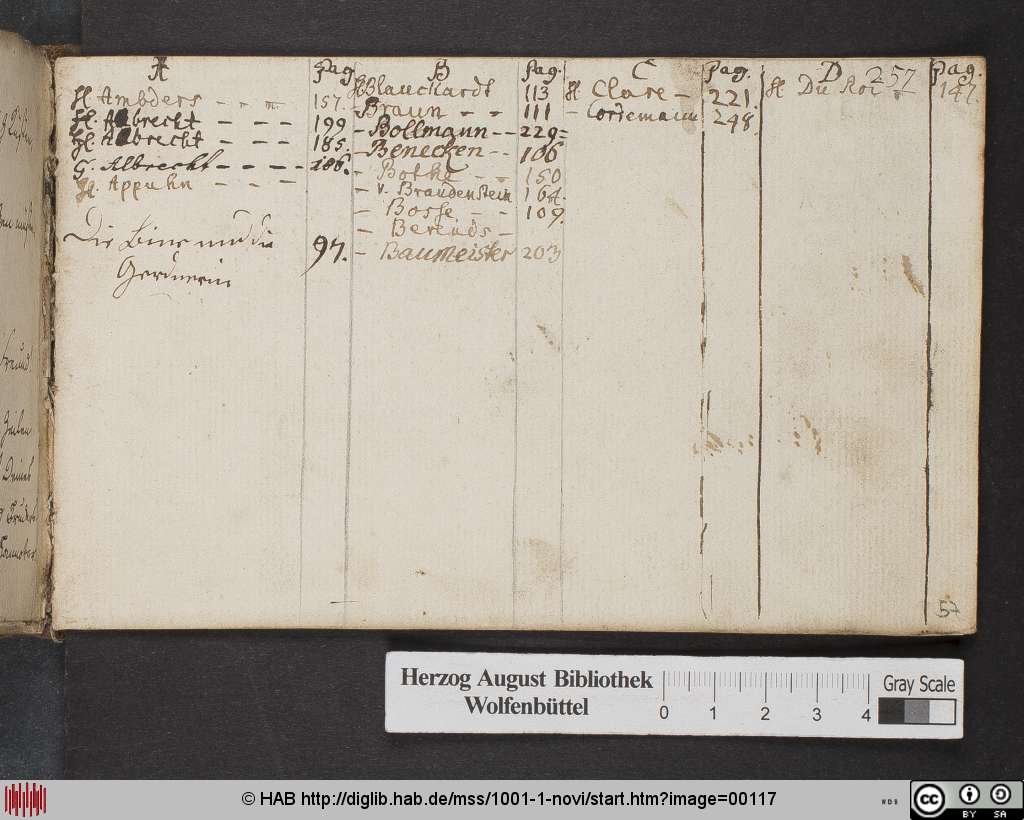 A
H. Ambders - - - -
H. Albrecht - - - -
H. Albrecht - - - -
G. Albrecht - - - -
H. Appuhn - - -
Die
Gerdnerin
pag
157.
199
185.
186.
97.
B
H Blanchardt
- Braun - -
- Bollmann - -
- Benecken - -
- Bothe - -
- v. Brandenstein
- Bosse - -
- Berends -
- Baumeister
pag.
113
111
229=
106
150
164.
109.
203
C
H Clare -
- Cordemann
pag.
221.
248.
D 257
H Du Roi -
pag.
147.
57
Freund.
Zeilen
Deines
Herzog August Bibliothek
Wolfenbüttel
0 1 2 3 4
Gray Scale
© HAB http://diglib.hab.de/mss/1001-1-novi/start.htm?image=00117
WDB
cc BY SA